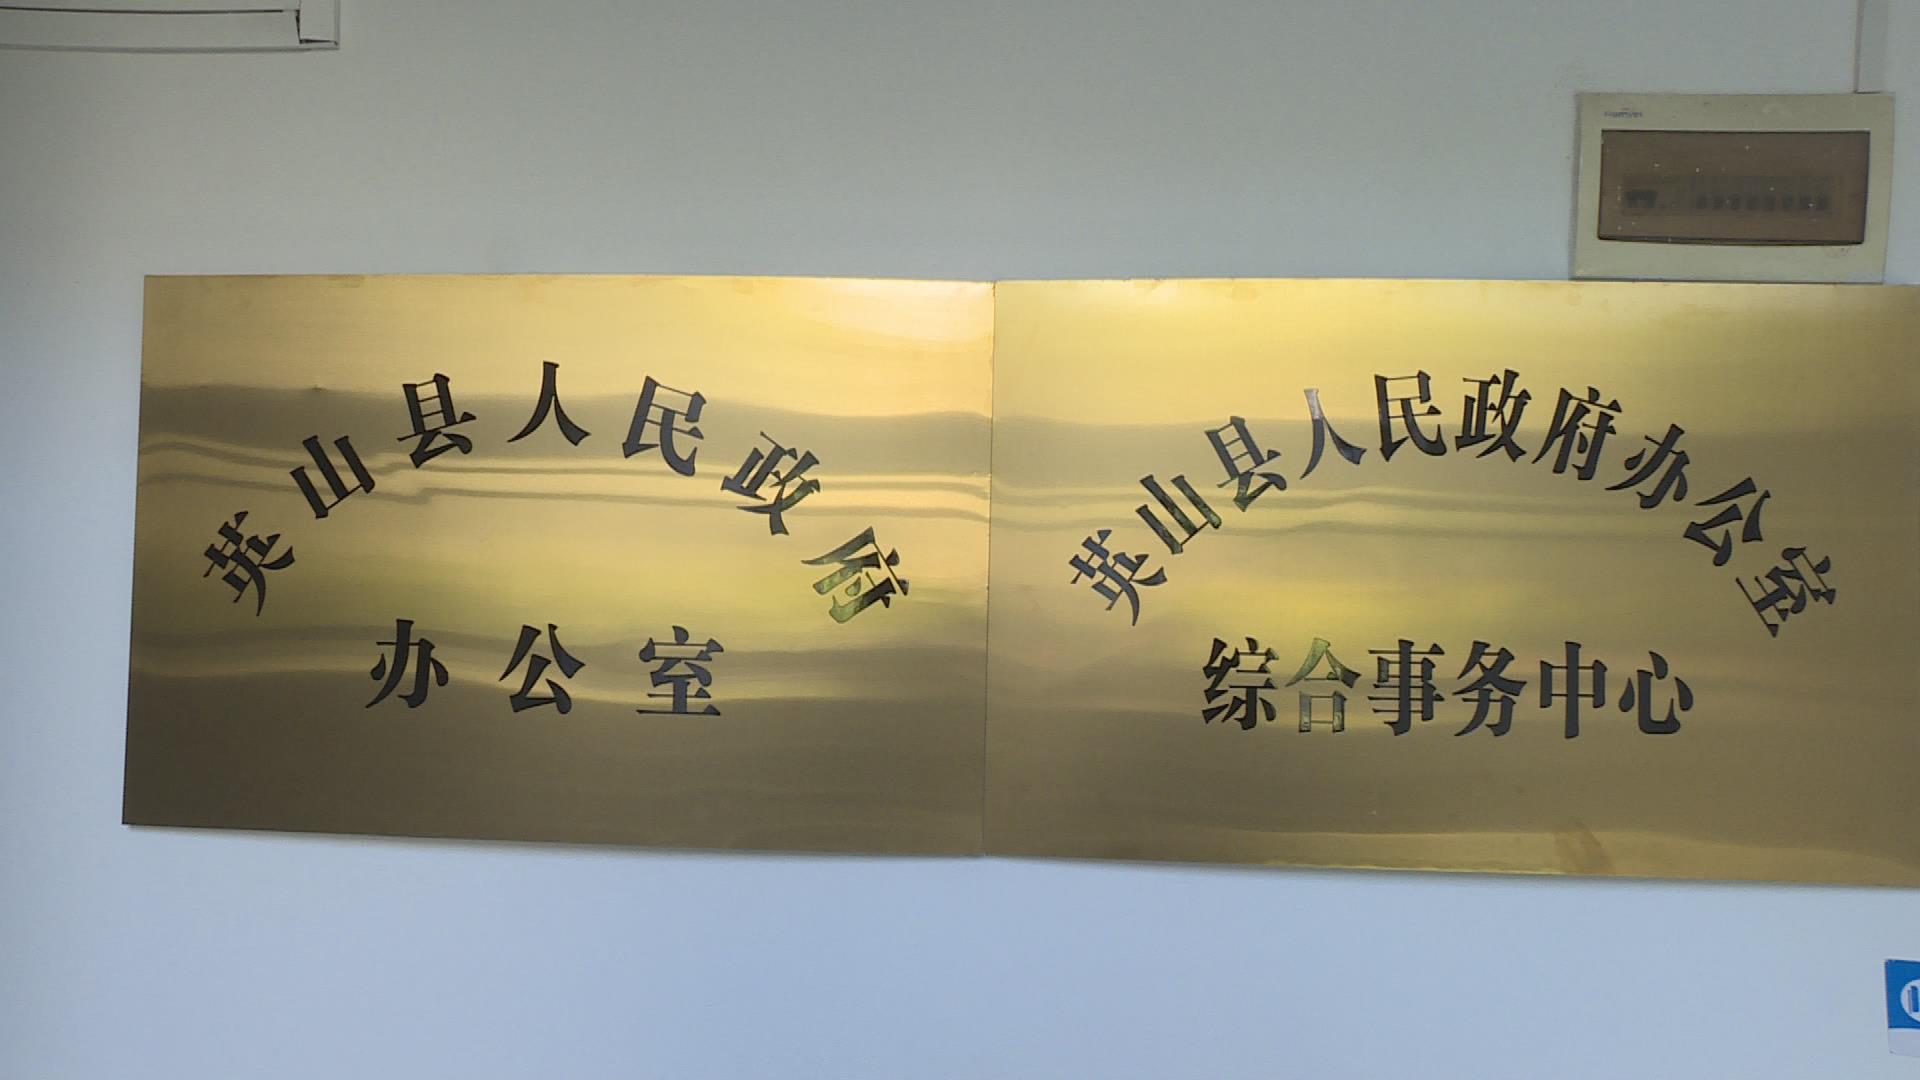 英山县人民政府
办公室
英山县人民政府办公室
综合事务中心